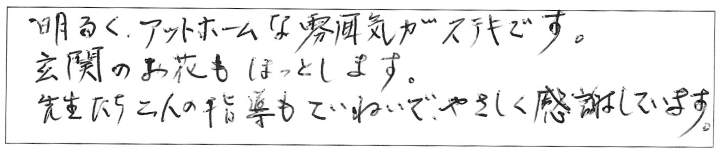 明るく、アットホームな雰囲気がステキです。
玄関のお花もほっとします。
先生たち二人の指導もていねいで、やさしく感謝しています。